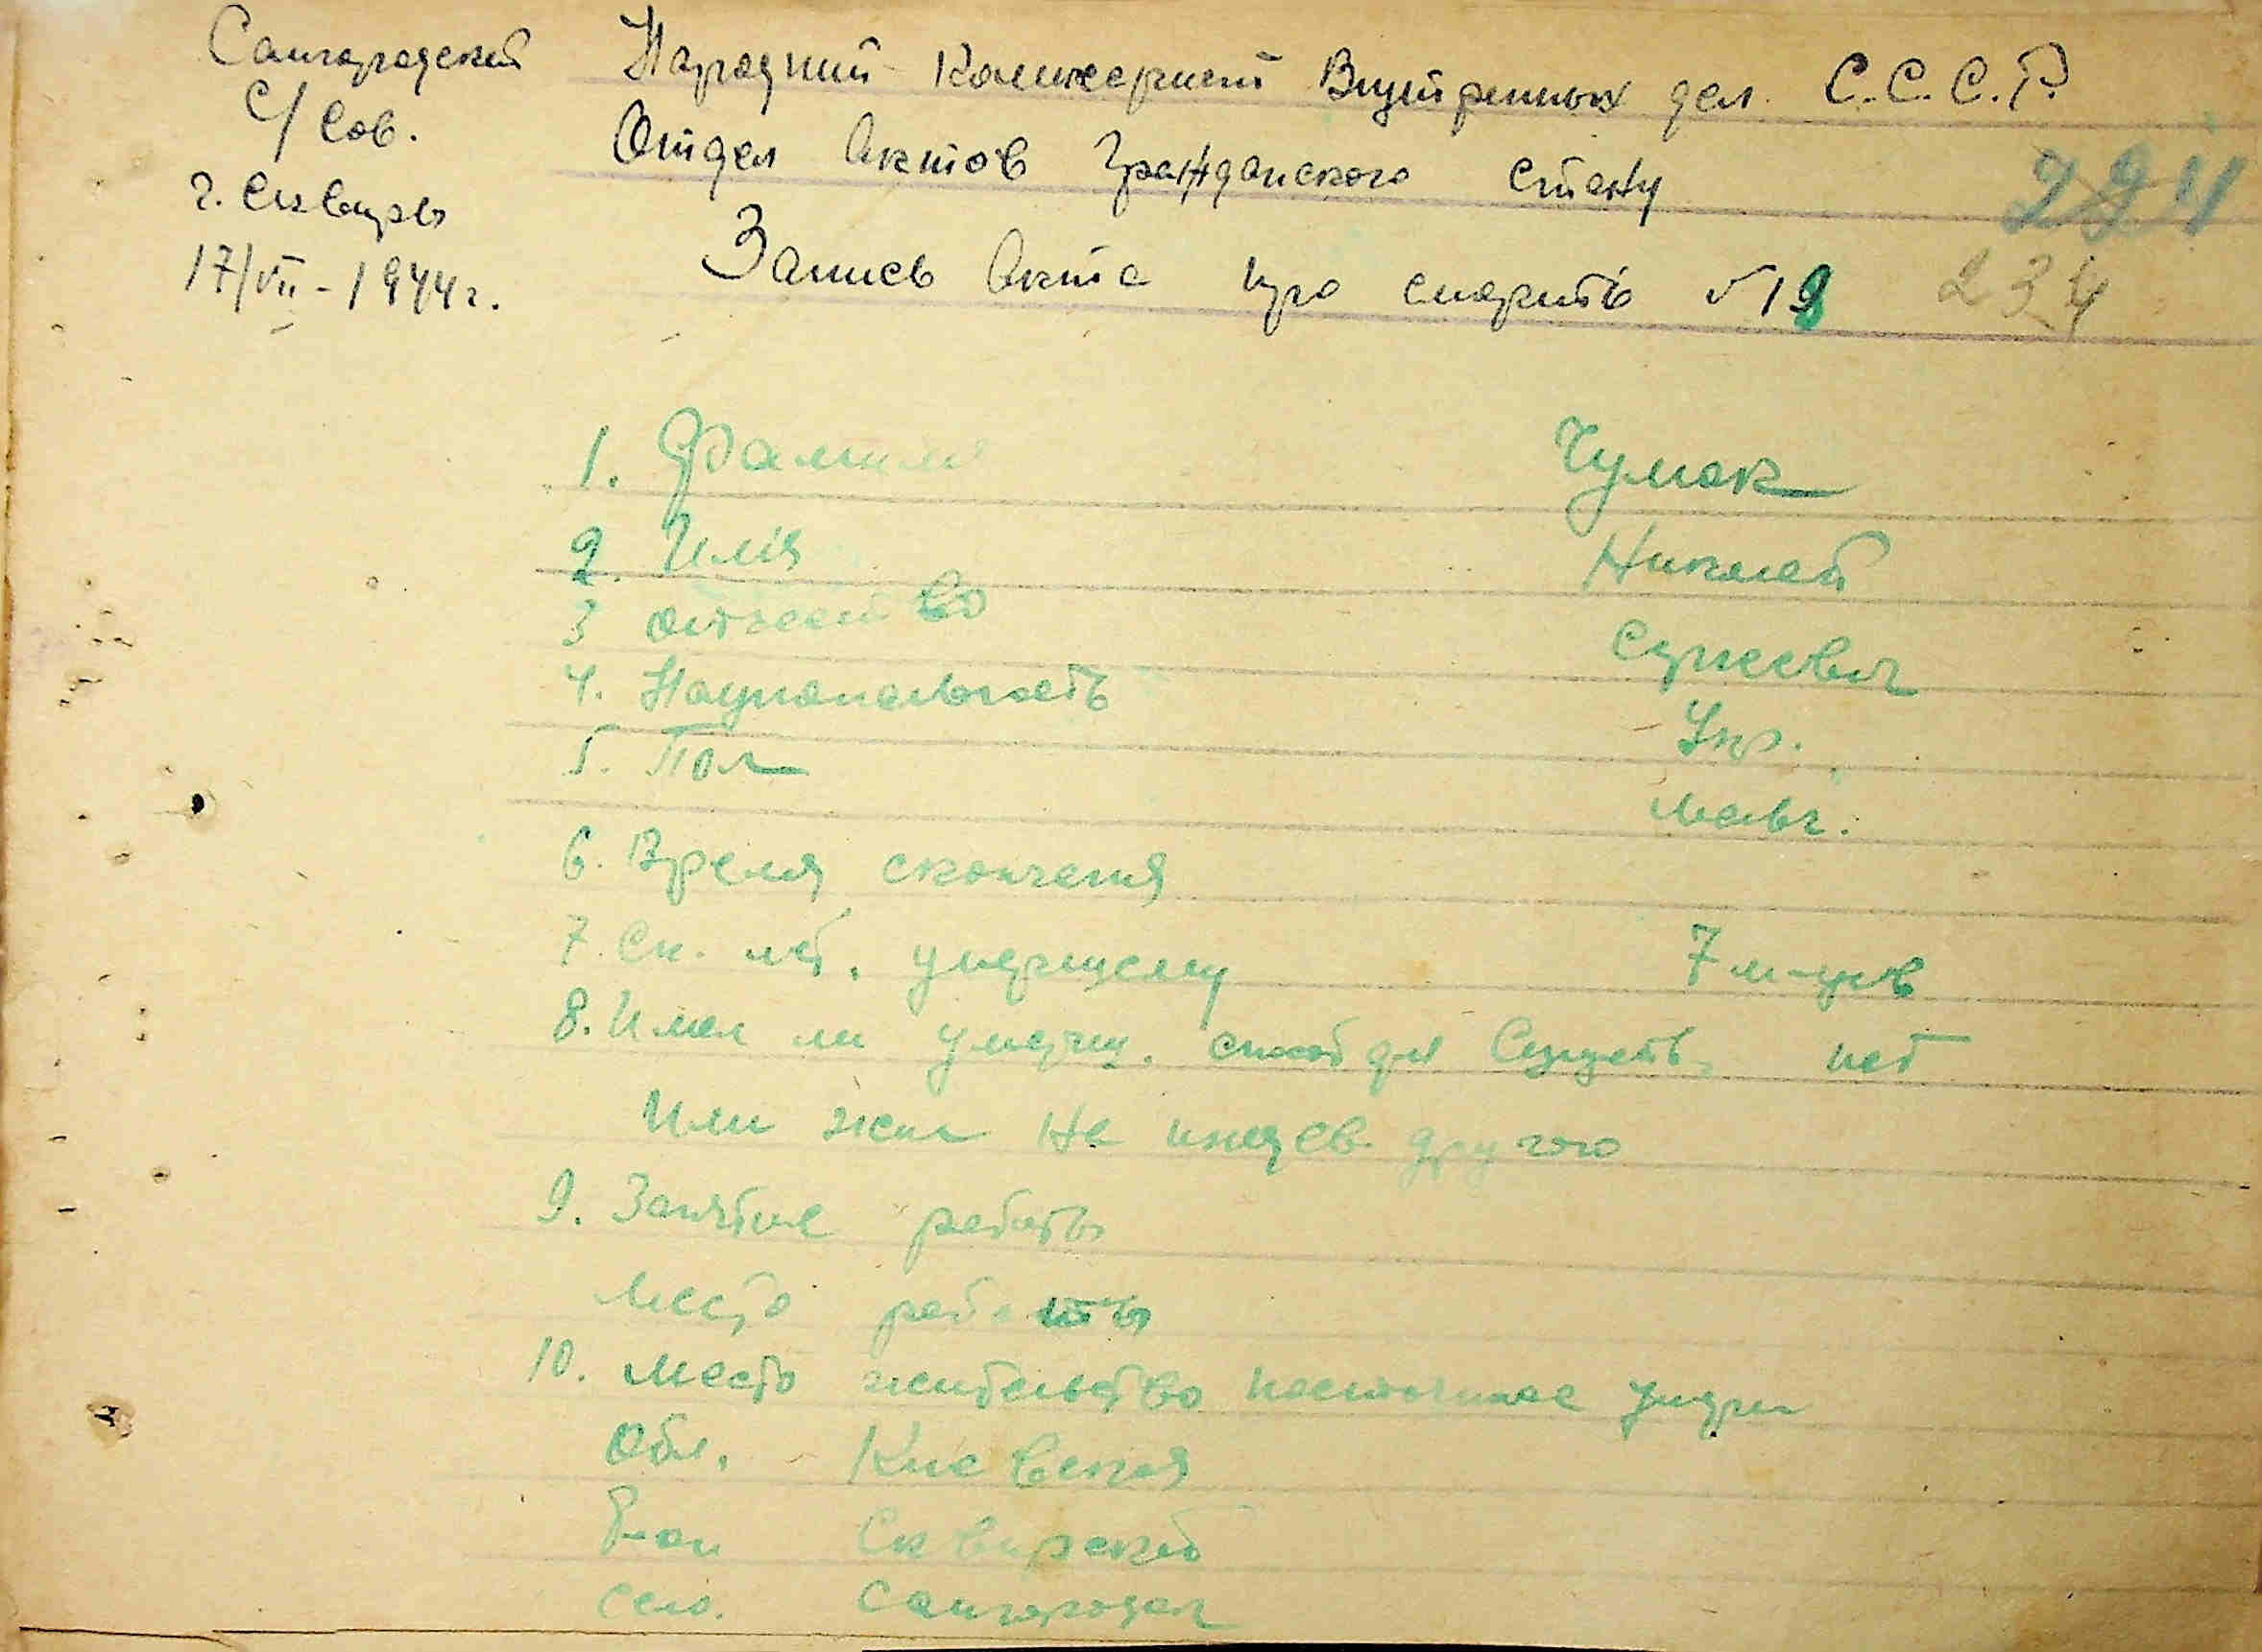 Самгородский
С/Сов.
г. Сквиры
17/VII - 1944 г.
Народний Комисариат Внутренных дел С.С.С.Р.
Отдел Актов Гражданского стану
Запись Акта про смерть № 19
224
234
1. Фамилия Чумак
2. Имія Николай
3 Отчество
4. Националность Укр.
5. Пол Мальч.
6. Время скончения
7. Ск. лет. умершему 7 м-цев
8. Имел ли умерш. для Сущеста. нет
Или жил на иждев. другого
9. Занятие работы
Место работы
10. Место жительство постоянное умерш
Обл. Киевская
Р-он Сквирский
село. Самгородок